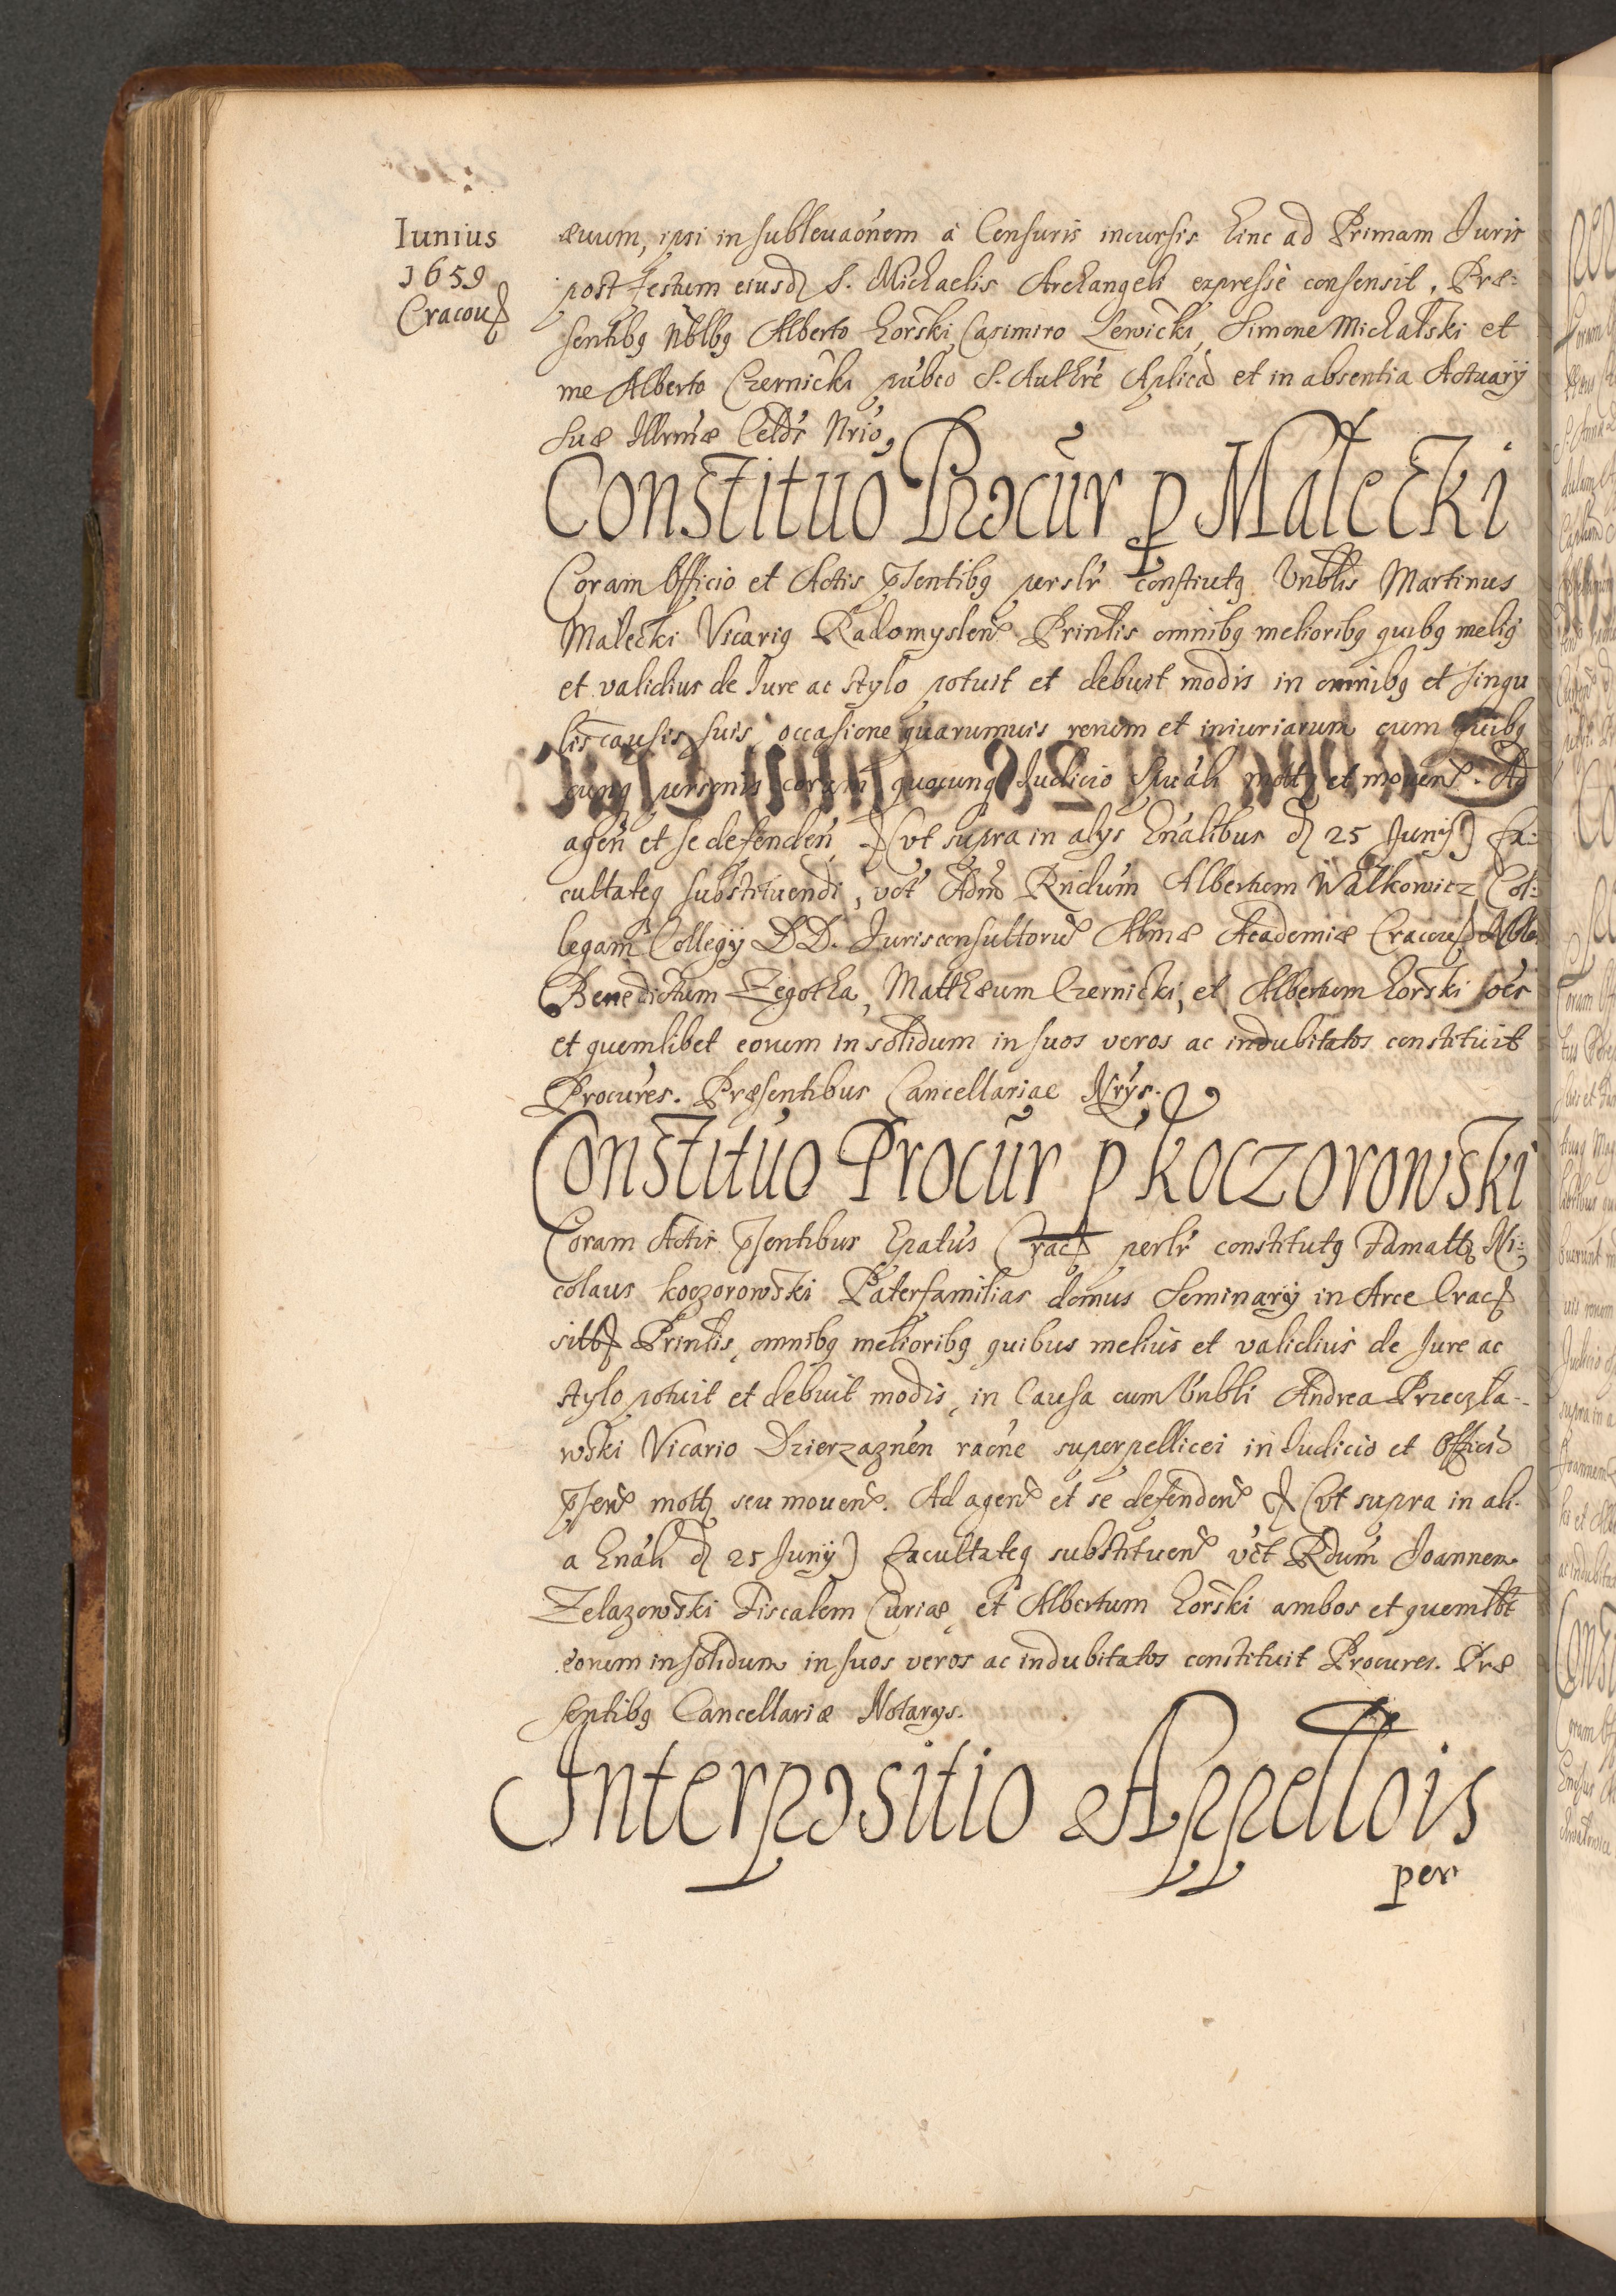 Iunius
1659
Cracou
æuum, ipsi in subleuaōnem à Censuris incursis hinc ad Primam Iuris
post Festum eiusd S. Michaelis Archangeli expressè consensit. Præ:
sentibꝯ Nblbꝯ Alberto Horski, Casimiro Lewicki, Simone Michalski et
me Alberto Czernicki pubco S. Authrē Aplicā et in absentia Actuarÿ
suæ Illrmæ Celdis Nrio,
Constituo Procur p Malecki
Coram Officio et Actis pñsentibꝯ perslr constiutꝯ Vnblis Martinus
Malecki Vicariꝯ Radomyslen Prinlis omnibꝯ melioribꝯ quibꝯ meliꝯ
et validius de Iure ac stylo potuit et debuit modis in omnibꝯ et singu
lis causis suis occasione quarumuis rerum et iniuriarum cum quibꝯ
cunqꝫ personis coram quocunqꝫ Iudicio Spuali mottꝫ et mouen. Ad
agen et se defenden, (vt supra in alys Enalibus d 25 Junÿ) fa:
cultateqꝫ substituendi, vct Adm Rndum Albertum Walkowicz Col:
legam Collegÿ DD. Iurisconsultoru Almæ Academiæ Cracou Nble
Benedictum Zegotha, Matthæum Czernicki, et Albertum Horski oēs
et quemlibet eorum in solidum in suos veros ac indubitatos constituit
Procures. Præsentibus Cancellariae Nrÿs.
Constituo Procur p Koczorowski
Coram Actis pñsentibus Epatus Crac perlr constitutꝯ Famattꝫ Ni:
colaus Koczorowski Paterfamilias domus Seminarÿ in Arce Crac
sitt Prinlis, omnibꝯ melioribꝯ quibus melius et validius de Iure ac
stylo potuit et debuit modis, in Causa cum Vnbli Andrea Przeczla-
wski Vicario Dzierzaznen raōne superpellicei in Iudicio et Officio
pñsen mottꝫ seu mouen. Ad agen et se defenden (vt supra in ali-
a Enali d 25 Junÿ) facultateqꝫ substituen vct Rdum Joannem
Zelazowski Fiscalem Curiæ, et Albertum Horski ambos et quemlbt
eorum in solidum in suos veros ac indubitatos constituit Procures. Præ
sentibꝯ Cancellariæ Notarys.
Interpositio Appellois
per